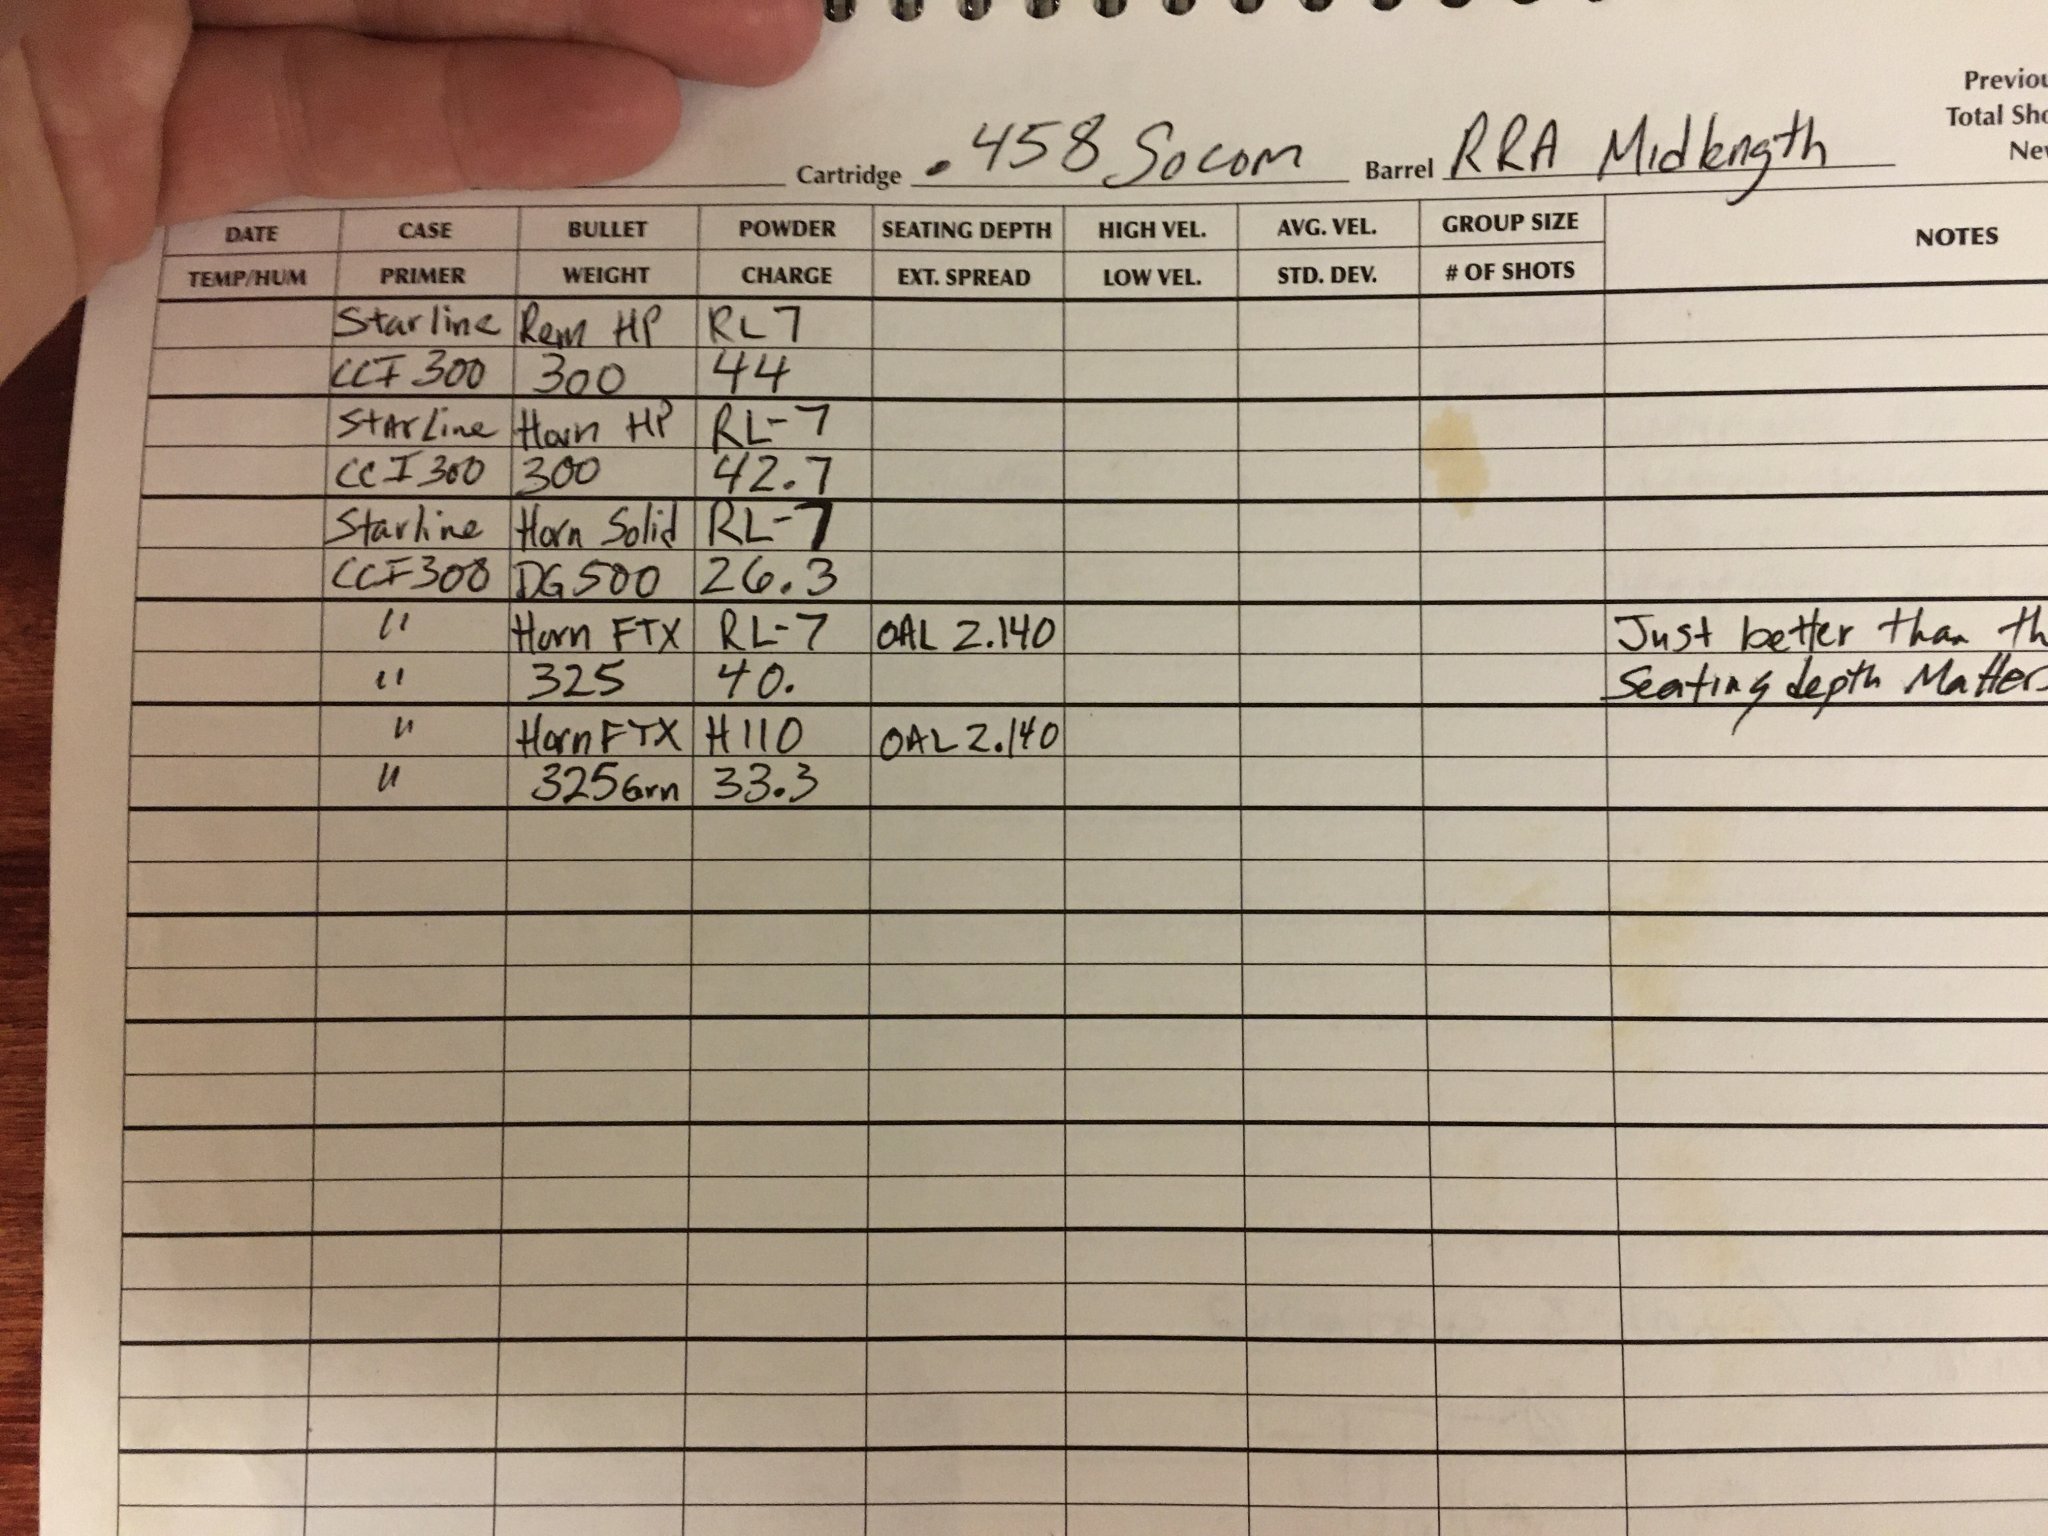 Previou
Total Sho
Cartridge .458 Socom Barrel RRA Midlength New
DATE CASE BULLET POWDER SEATING DEPTH HIGH VEL. AVG. VEL. GROUP SIZE NOTES
TEMP/HUM PRIMER WEIGHT CHARGE EXT. SPREAD LOW VEL. STD. DEV. # OF SHOTS
Starline Rem HP RL7
CCI 300 300 44
Starline Horn HP RL-7
CCI 300 300 42.7
Starline Horn Solid RL-7
CCI 300 DG 500 26.3
" Horn FTX RL-7 OAL 2.140 Just better than th
" 325 40. Seating depth Matters
" Horn FTX H110 OAL 2.140
" 325Grn 33.3